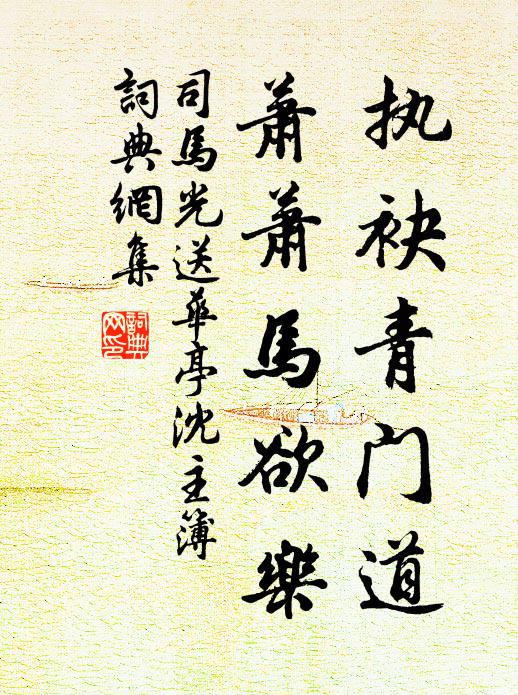 执袂青门道
萧萧馬欲樂
司馬光送華亭沈主簿
詞典網集
詞典
网印